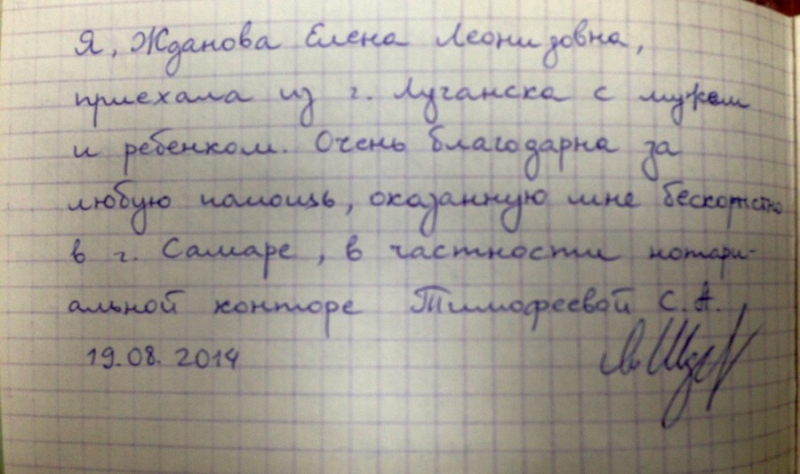 Я, Жданова Елена Леонидовна,
приехала из г. Луганска с мужем
и ребенком. Очень благодарна за
любую помощь, оказанную мне бескорыстно
в г. Самаре, в частности нотари-
альной конторе Тимофеевой С.А.
19.08.2014